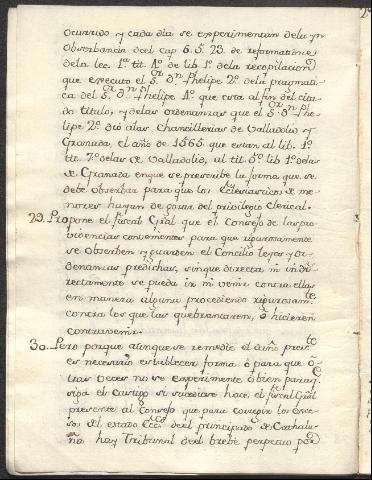 ocurrido, y cada dia se experimentan de la yn
observancia del cap. 6. S. 23. de reformatione
de la lee. 1ª tit. 4º de lib 1º de la recopilacion
que executo el S.or dn Phelipe 2º de la pragmati
ca del S.or dn Phelipe 4º que esta al fin del cita
do titulo, y de las ordenanzas que el S.or dn Phe
lipe 2º dió alas Chancillerias de Valladolid y
Granada, el año de 1565 que estan al lib. 1º
tit. 7º de las de Valladolid, al tit. 5º lib 1º de las
de Granada en que se prescribe la forma que se
debe observar para que los Eclesiasticos de me
nores hayan de gozar del privilegio clerical.
29. Propone el fiscal Gral que el Consejo de las pro
videncias convenientes para que rigurosamente
se observen y guarden el Concilio leyes y or
denanzas predichas, sin que directa ni indi
rectamente se pueda ir ni venir contra ellas
en manera alguna procediendo rigurosam.te
contra los que las quebrantaren, ó hicieren
contravenir.
30. Pero porque aunque se remedie el daño pres.te
es necesario establecer forma ó para que ó
tras veces no se experimente ó bien para q.e
siga el castigo si sucediere hace el fiscal Gral
presente al Consejo que para corregir los exce
sos del estado Ecc.co del principado de Cathalu
ña hay Tribunal del brebe perpetuo por